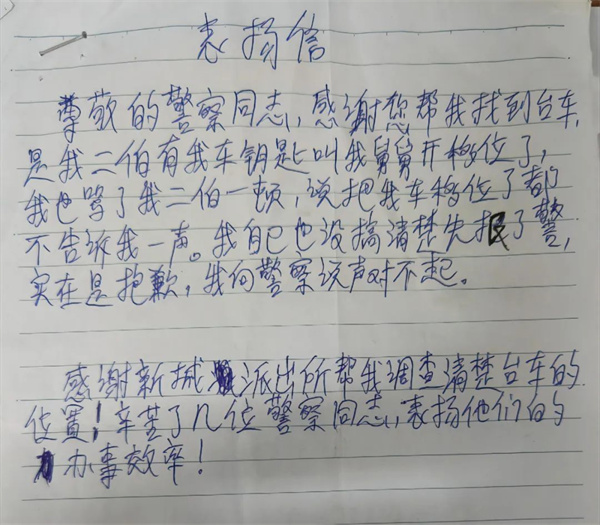 表扬信
尊敬的警察同志，感谢您帮我找到台车，
是我二伯有我车钥匙叫我舅舅开移位了，
我也骂了我二伯一顿，说把我车移位了都
不告诉我一声。我自己也没搞清楚先报了警，
实在是抱歉，我向警察说声对不起。
感谢新城派出所帮我调查清楚台车的
位置！辛苦了几位警察同志，表扬他们的
办事效率！